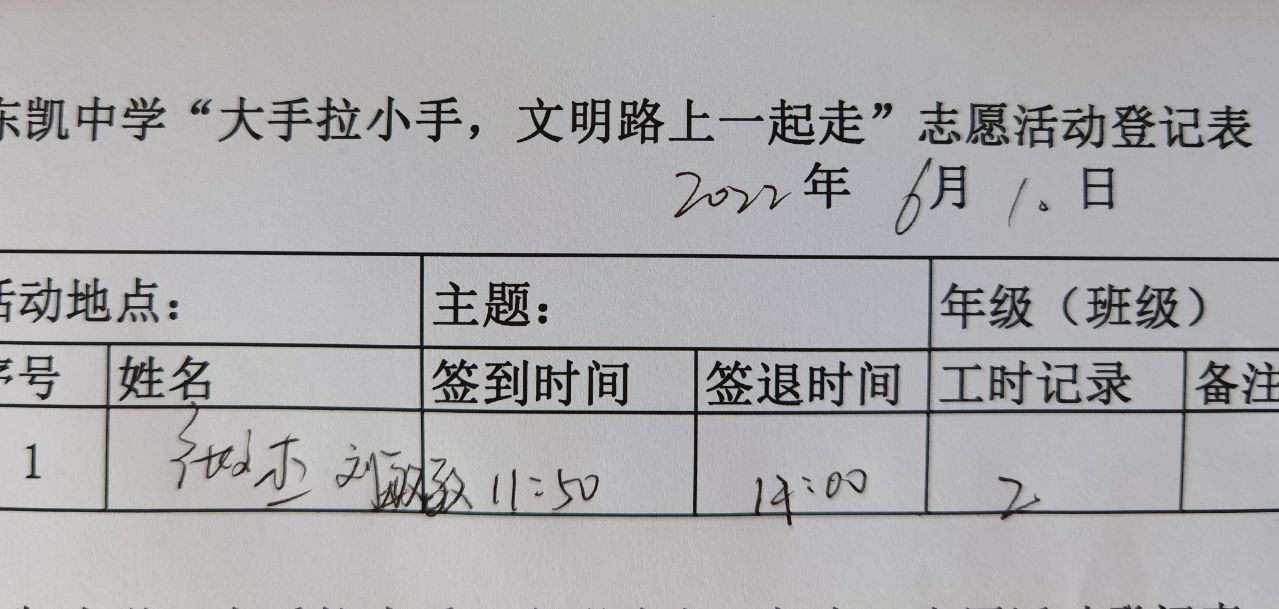 东凯中学“大手拉小手，文明路上一起走”志愿活动登记表
2022年 6月 1日
活动地点： 主题： 年级（班级）
序号 姓名 签到时间 签退时间 工时记录 备注
1 刘 11:50 14:00 2